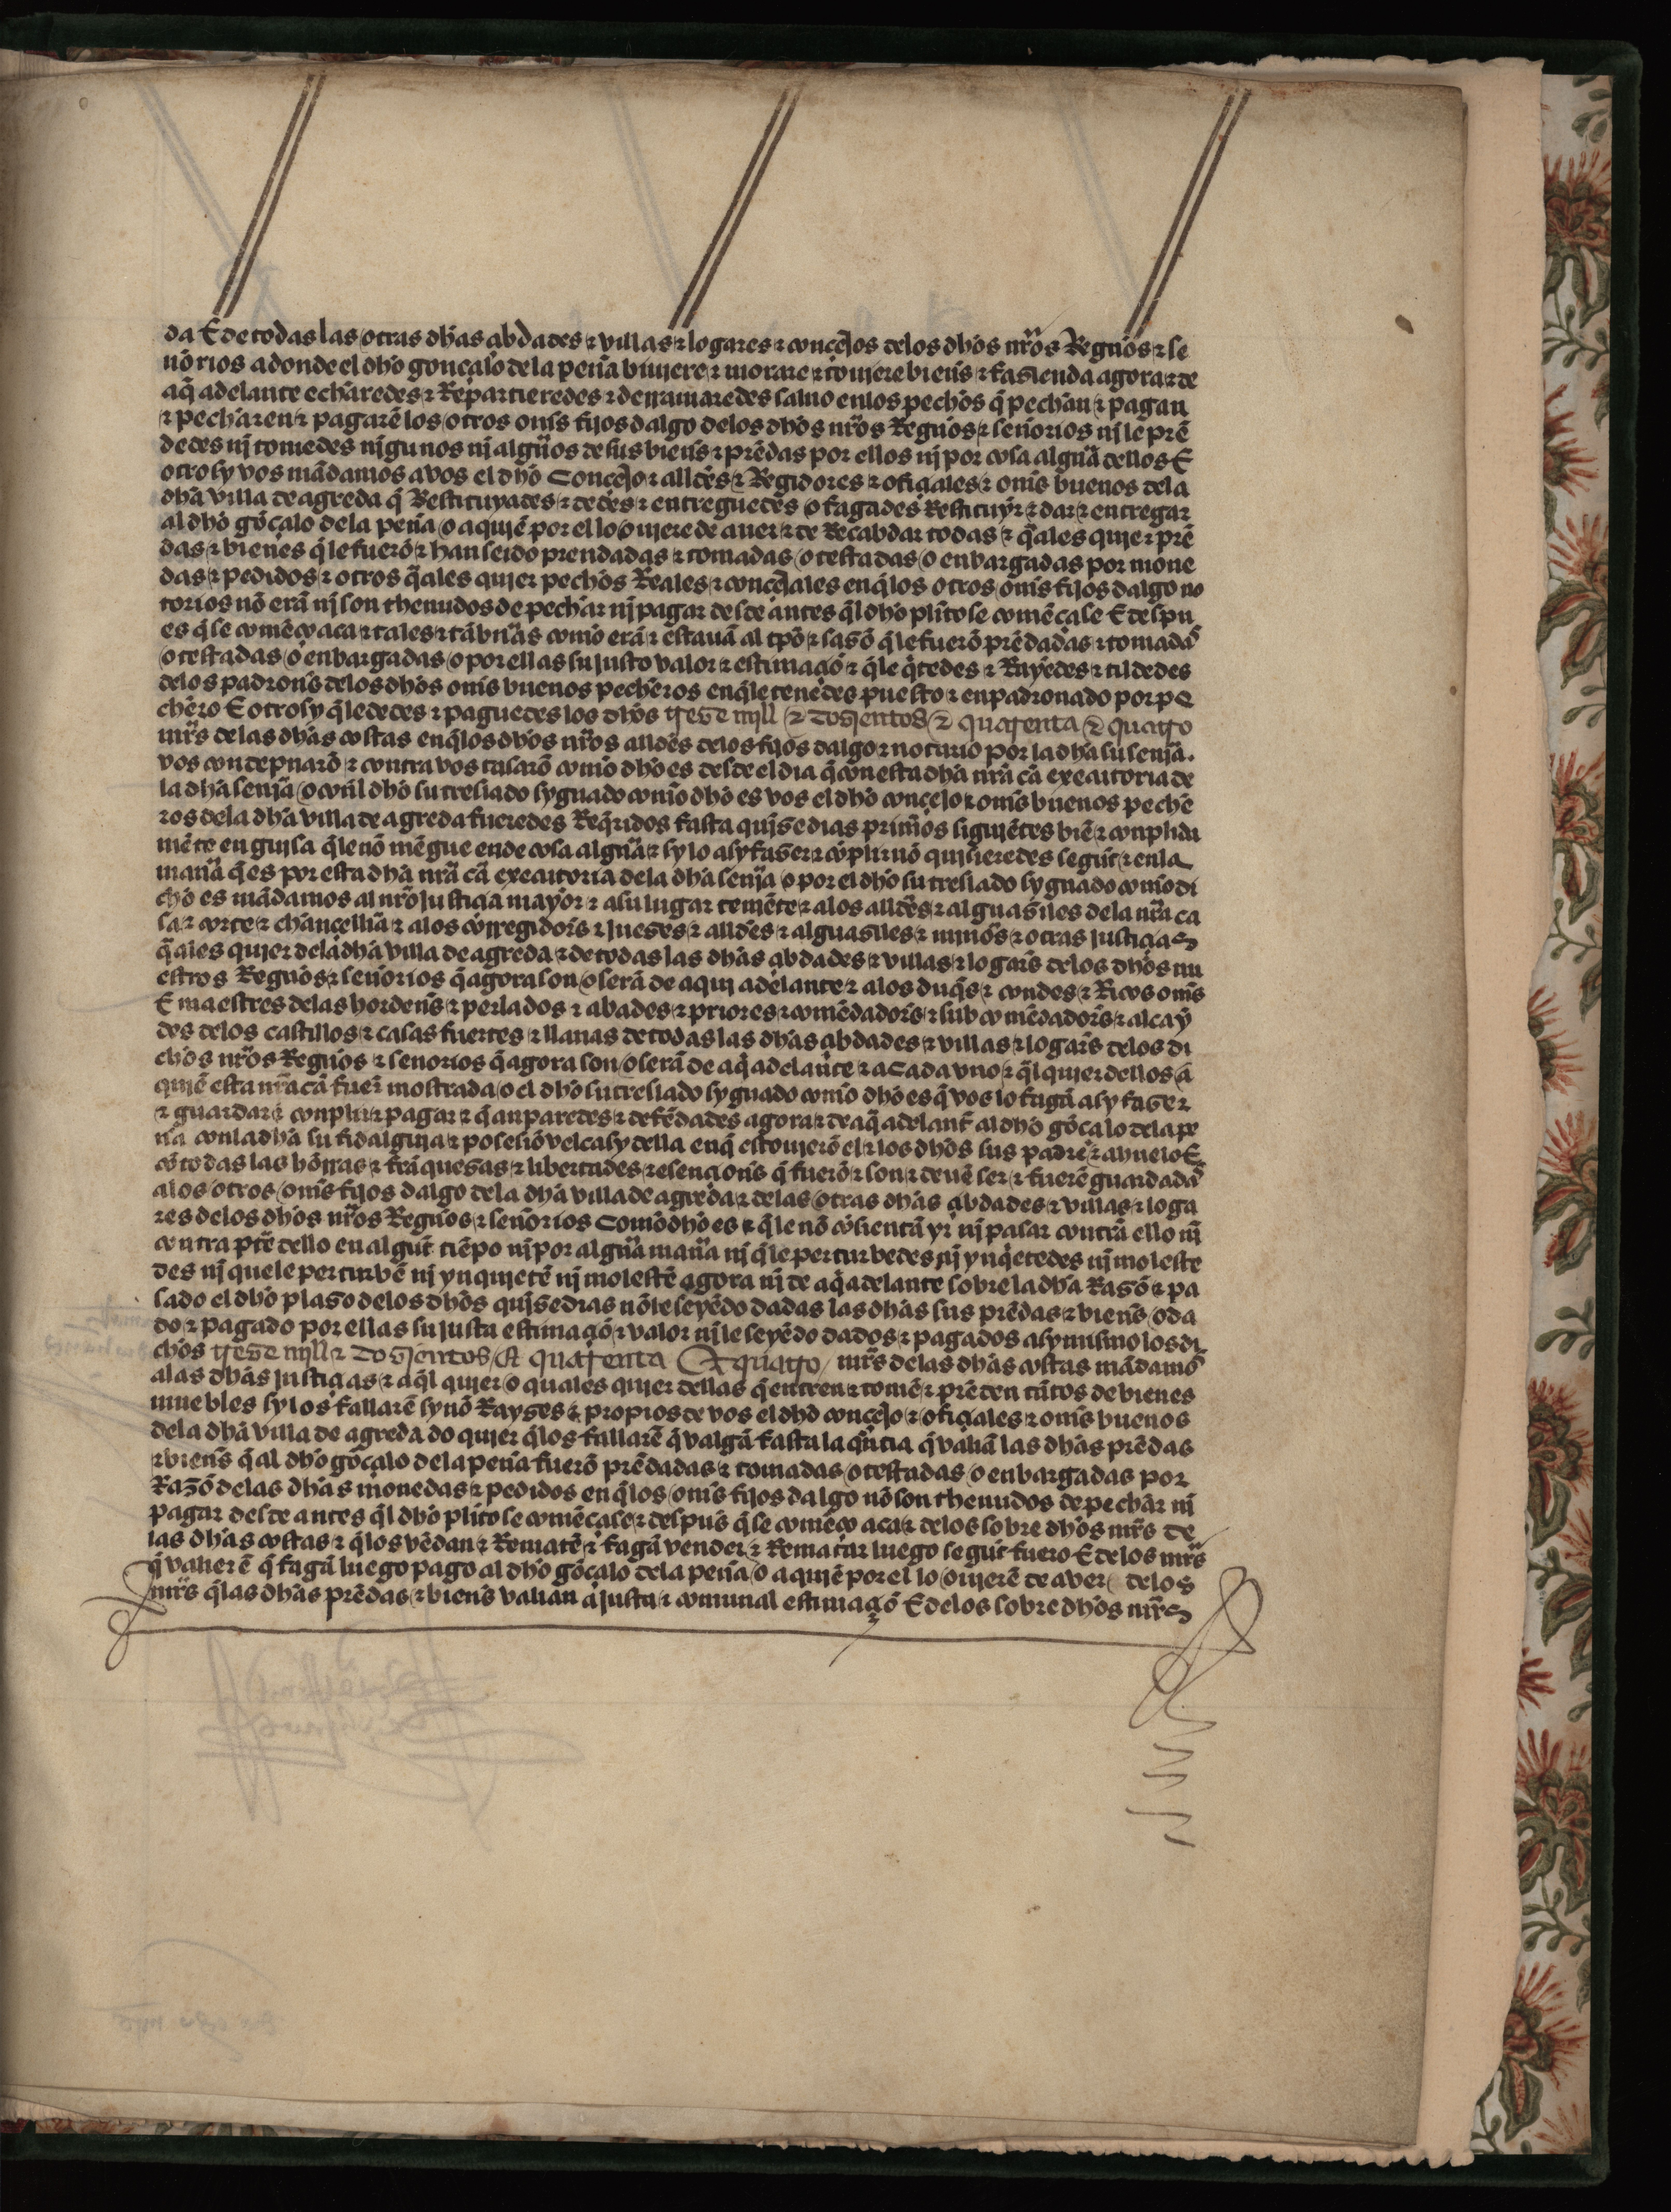 da E de todas las otras dhãs çibdades ⁊ villas ⁊ logares ⁊ conçejos delos dhõs nr̃os Regnos ⁊ se
ñorios adonde el dhõ gonçalo dela peña biujere ⁊ morare ⁊ toujere bienẽs ⁊ fasienda agora ⁊ de
aq̃ adelante echaredes ⁊ Repartieredes ⁊ derramaredes saluo enlos pechos q̃ pechan ⁊ pagan
⁊ pecharen ⁊ pagarẽ los otros omẽs fijos dalgo delos dhõs nr̃os Regnos ⁊ señorios nj le prẽ
dedes nj tomedes njgunos nj algũos de sus bienẽs ⁊ prẽdas por ellos nj por cosa algũa dellos E
otrosy vos mãdamos a vos el dhõ Conçejo ⁊ alldẽs ⁊ Regidores ⁊ ofiçiales ⁊ omẽs buenos dela
dhã villa de agreda q̃ Restituyades ⁊ dedes ⁊ entreguedes o fagades Restituyr ⁊ dar ⁊ entregar
al dhõ gõçalo dela peña o a qujẽ por ello oujere de auer ⁊ de Recabdar todas ⁊ q̃ales qujer prẽ
das ⁊ bienes q̃le fuerõ ⁊ han seido prendadas ⁊ tomadas o testadas o enbargadas por mone
das ⁊ pedidos ⁊ otros q̃ales qujer pechos Reales ⁊ conçejales enq̃los otros omẽs fijos dalgo no
torios nõ erã nj son thenudos de pechar nj pagar desde antes q̃l dhõ plito se comẽçase E despu
es q̃ se comẽço aca ⁊ tales ⁊ tã bũas como erã ⁊ estauã al tpõ ⁊ sasõ q̃le fuerõ prẽdadas ⁊ tomadas
o testadas o enbargadas o por ellas su justo valor ⁊ estimaçiõ ⁊ q̃le q̃tedes ⁊ Rayedes ⁊ tildedes
delos padronẽs delos dhõs omẽs buenos pecheros enq̃le tenedes puesto ⁊ enpadronado por pe
chero E otrosy q̃le dedes ⁊ paguedes los dhõs treze mjll ⁊ dozientos ⁊ quarenta ⁊ quatro
mr̃s delas dhãs costas enq̃los dhõs nr̃os alldẽs delos fijos dalgo ⁊ notario por la dhã su senjã
vos condepnarõ ⁊ contra vos tasarõ como dhõ es desde el dia q̃ con esta dhã nr̃a cã executoria de
la dhã senjã o conl dhõ su treslado sygnado como dhõ es vos el dhõ conçejo ⁊ omẽs buenos peche
ros dela dhã villa de agreda fueredes Req̃ridos fasta qujnse dias primeros siguiẽtes biẽ ⁊ conplida
mẽte en guisa q̃le nõ mẽgue ende cosa algũa ⁊ sy lo asy faser ⁊ cõplir nõ quisieredes segũt ⁊ enla
manã q̃ es por esta dhã nr̃a cã executoria dela dhã senjã o por el dhõ su treslado sygnado como di
cho es mãdamos al nr̃o justiçia mayor ⁊ a su lugar temẽte ⁊ alos alldẽs ⁊ alguasiles dela nr̃a ca
sa ⁊ corte ⁊ chançellia ⁊ alos corregidorẽs ⁊ jueses ⁊ alldẽs ⁊ alguasiles ⁊ mjnos ⁊ otras justiçias
q̃ales qujer dela dhã villa de agreda ⁊ de todas las dhãs çibdades ⁊ villas ⁊ logarẽs delos dhõs nu
estros Regnos ⁊ señorios q̃ agora son o serã de aquj adelante ⁊ alos duq̃s ⁊ condes ⁊ Ricos omẽs
E maestres delas hordenẽs ⁊ perlados ⁊ abades ⁊ priores ⁊ comẽdadorẽs ⁊ sub comẽdadorẽs ⁊ alcay
des delos castillos ⁊ casas fuertes ⁊ llanas de todas las dhãs çibdades ⁊ villas ⁊ logarẽs delos di
chos nr̃os Regnos ⁊ señorios q̃ agora son o serã de aq̃ adelante ⁊ a Cada vno ⁊ q̃l qujer dellos a
qujẽ esta nr̃a cã fuer̃ mostrada o el dhõ su treslado sygnado como dhõ es q̃ vos lo fagã asy faser
⁊ guardar ⁊ conplir ⁊ pagar ⁊ q̃ anpareдes ⁊ defẽdades agora ⁊ de aq̃ adelant̃ al dhõ gõçalo dela pe
ña conla dhã su fidalguja ⁊ posesiõ vel casy della enq̃ estoujerõ el ⁊ los dhõs sus padre ⁊ ahuelo E
cõ todas las hõrras ⁊ frãquesas ⁊ libertades ⁊ esençionẽs q̃ fuerõ ⁊ son ⁊ deuẽ ser ⁊ fuerẽ guardadas
alos otros omẽs fijos dalgo dela dhã villa de agreda ⁊ delas otras dhãs çibdades ⁊ villas ⁊ loga
res delos dhõs nr̃os Regnos ⁊ señorios Como dhõ es ⁊ q̃le nõ cõsientã yr nj pasar contra ello nj
contra ptẽ dello en algũt tiẽpo nj por algũa manã nj q̃le perturbedes nj ynq̃etedes nj moleste
des nj quele perturbẽ nj ynqujetẽ nj molestẽ agora nj de aq̃ adelante sobre la dhã Rasõ ⁊ pa
sado el dhõ plaso delos dhõs qujnse dias nõ le seyẽdo dadas las dhãs sus prẽdas ⁊ bienẽs o da
do ⁊ pagado por ellas su justa estimaçiõ ⁊ valor nj le seyẽdo dados ⁊ pagados asymismo los di
chos treze mjll ⁊ dozientos ⁊ quarenta ⁊ quatro mr̃s delas dhãs costas mãdamos
alas dhãs justiçias ⁊ a q̃l qujer o quales qujer dellas q̃ entren ⁊ tomẽ ⁊ prẽden tãtos de bienes
muebles sy los fallarẽ synõ Rayses ⁊ propios de vos el dhõ conçejo ⁊ ofiçiales ⁊ omẽs buenos
dela dhã villa de agreda do qujer q̃los fallarẽ q̃ valgã fasta la q̃ntia q̃ valiã las dhãs prẽdas
⁊ bienẽs q̃ al dhõ gõçalo dela peña fuerõ prẽdadas ⁊ tomadas o testadas o enbargadas por
Razõ delas dhãs monedas ⁊ pedidos enq̃los omẽs fijos dalgo nõ son thenudos de pechar nj
pagar desde antes q̃l dhõ plito se comẽçase ⁊ despũs q̃ se comẽço aca ⁊ delos sobre dhõs mr̃s de
las dhãs costas ⁊ q̃los vẽdan ⁊ Rematẽ ⁊ fagã vender ⁊ Rematar luego segũt fuero E delos mr̃s
q̃ valierẽ q̃ fagã luego pago al dhõ gõçalo dela peña o a qujẽ por el lo oujerẽ de aver delos
mr̃s q̃las dhãs prẽdas ⁊ bienẽs valian a justa ⁊ comunal estimaçiõ E delos sobre dhõs mr̃s